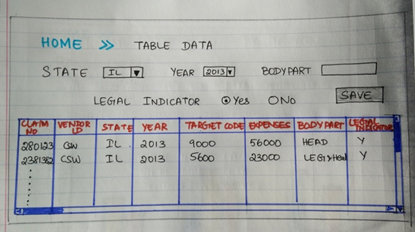 HOME >> TABLE DATA
STATE IL YEAR 2013 BODYPART
LEGAL INDICATOR Yes No SAVE
CLAIM NO VENDOR ID STATE YEAR TARGET CODE EXPENSES BODYPART LEGAL INDICATOR
280123 IL 2013 9000 56000 HEAD Y
CSW IL 2013 5600 23000 Y